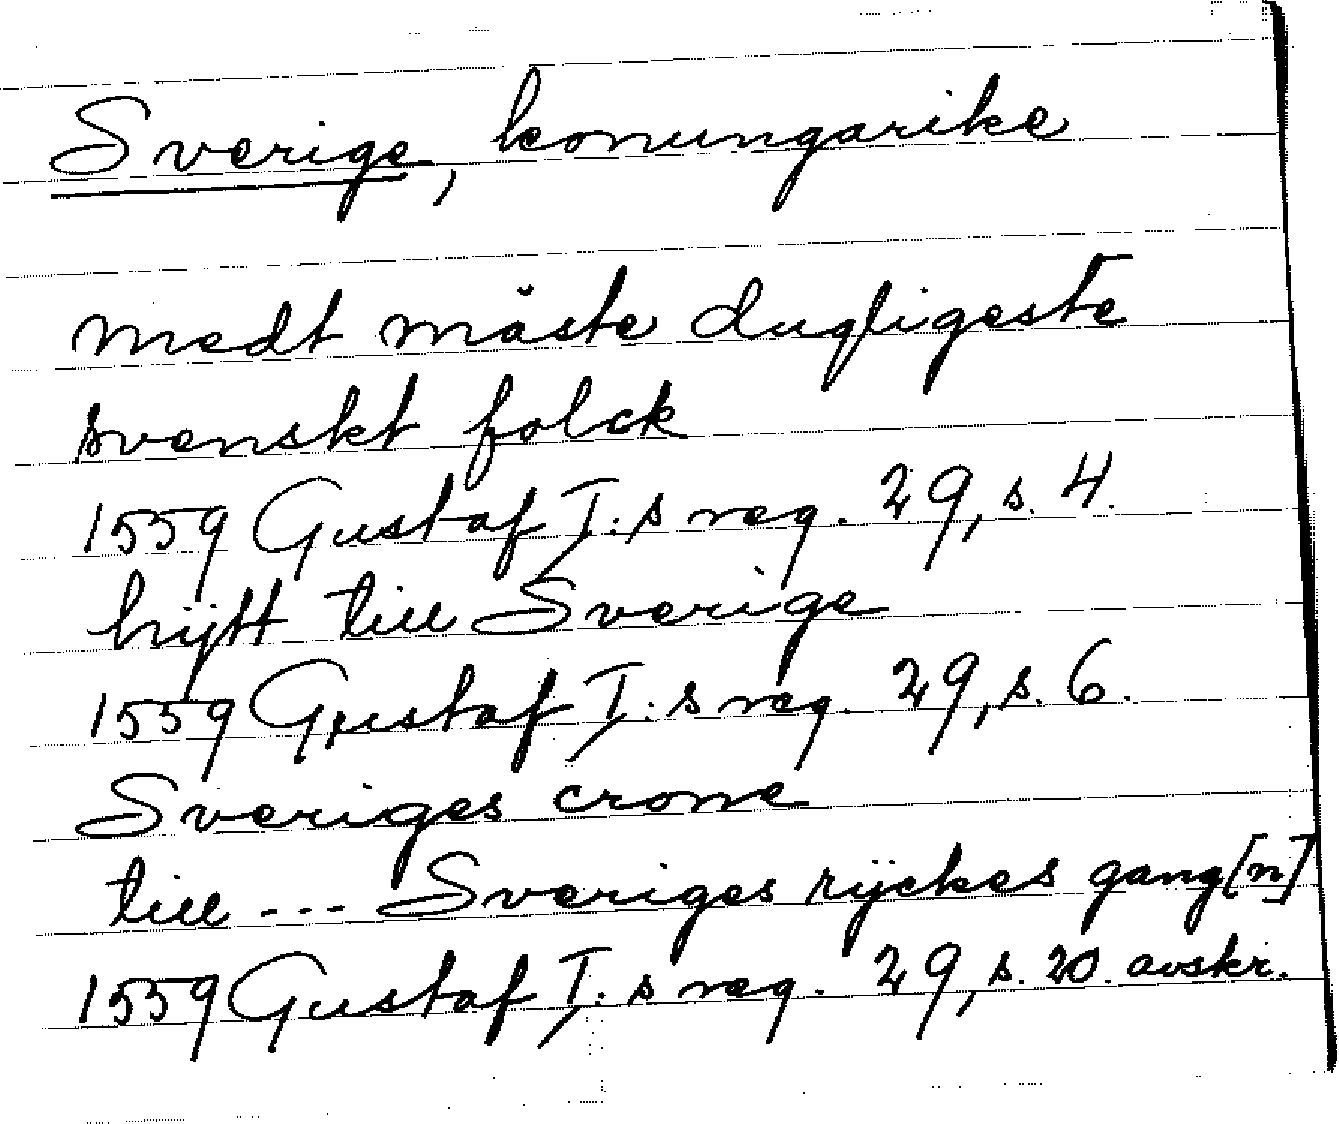 Sverige, konungarike
medt måste dugligeste
svenskt folck
1559 Gustaf I:s reg. 29, s. 4.
hijtt till Sverige
1559 Gustaf I:s reg. 29, s. 6.
Sveriges crone
till --- Sveriges rÿckes gang[n]
1559 Gustaf I:s reg. 29, s. 20. avskr.